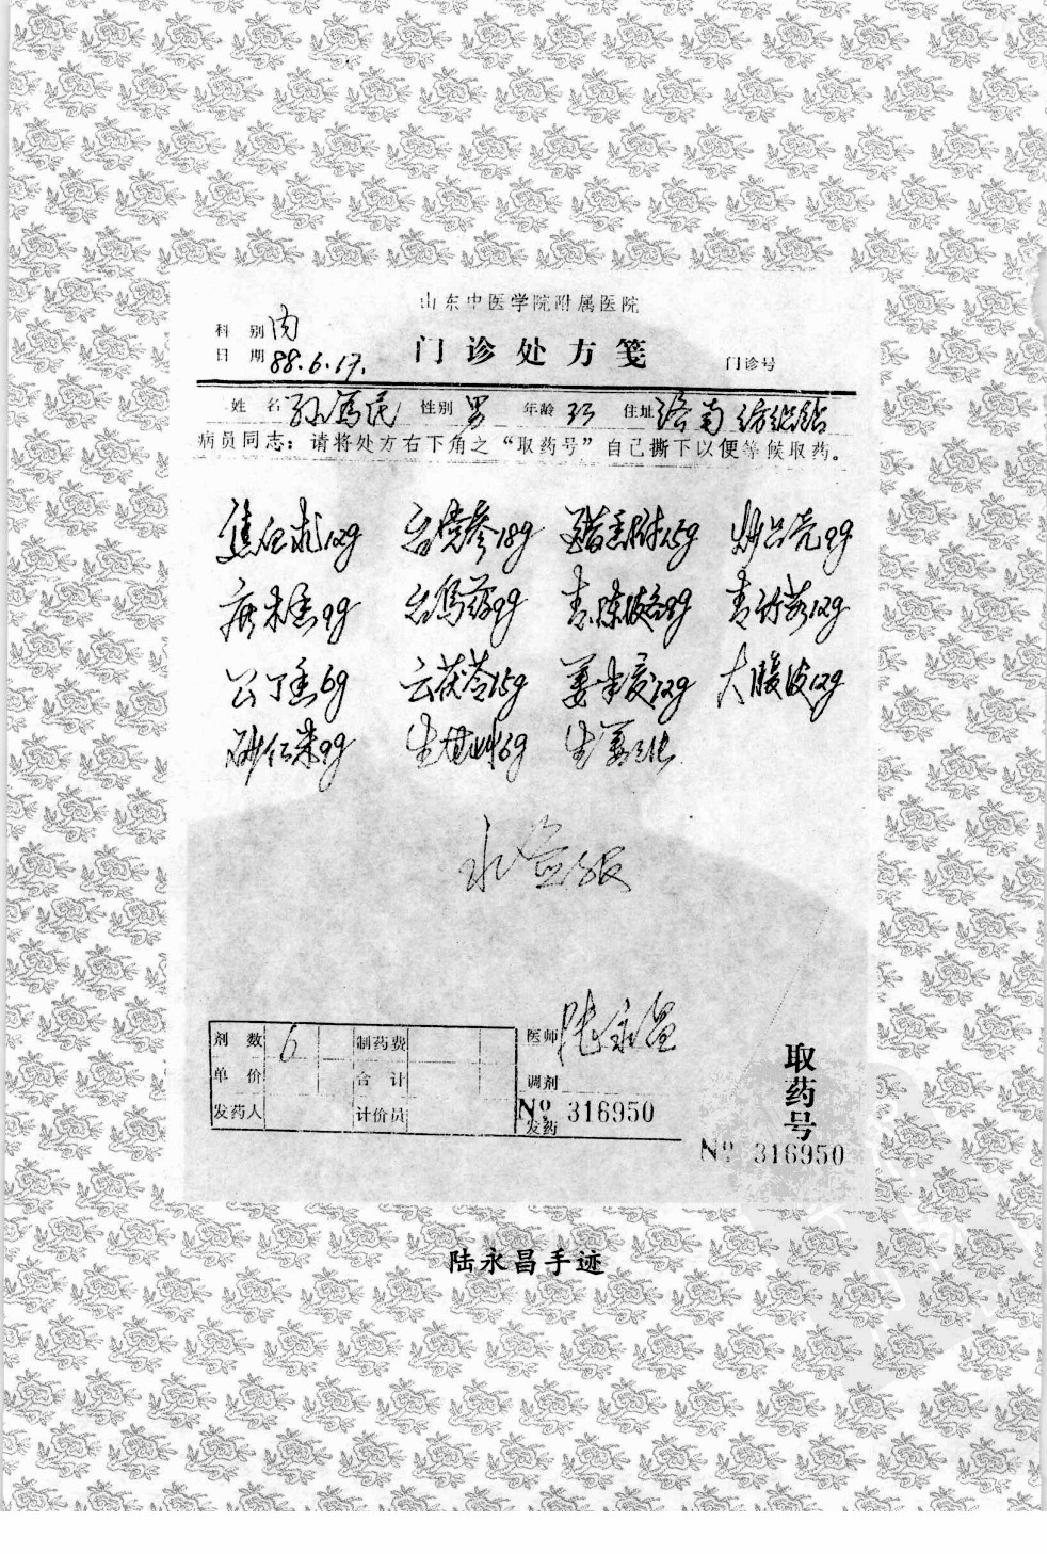 山东中医学院附属医院
科别 内
日期 88.6.17.
门诊处方笺
门诊号
姓名 孙 民 性别 男 年龄 33 住址 济南
病员同志：请将处方右下角之“取药号”自己撕下以便等候取药。
焦白术12g 台党参18g 醋香附15g 炒只壳9g
广木香9g 台乌药9g 青、陈皮各9g 青竹茹12g
公丁香6g 云茯苓15g 姜半夏12g 大腹皮12g
砂仁米9g 生甘草6g 生姜三片
水煎服
剂数 6 制药费
单价 合计
发药人 计价员
医师 陆永昌
调剂
No 316950
发药
取药号
No 316950
陆永昌手迹